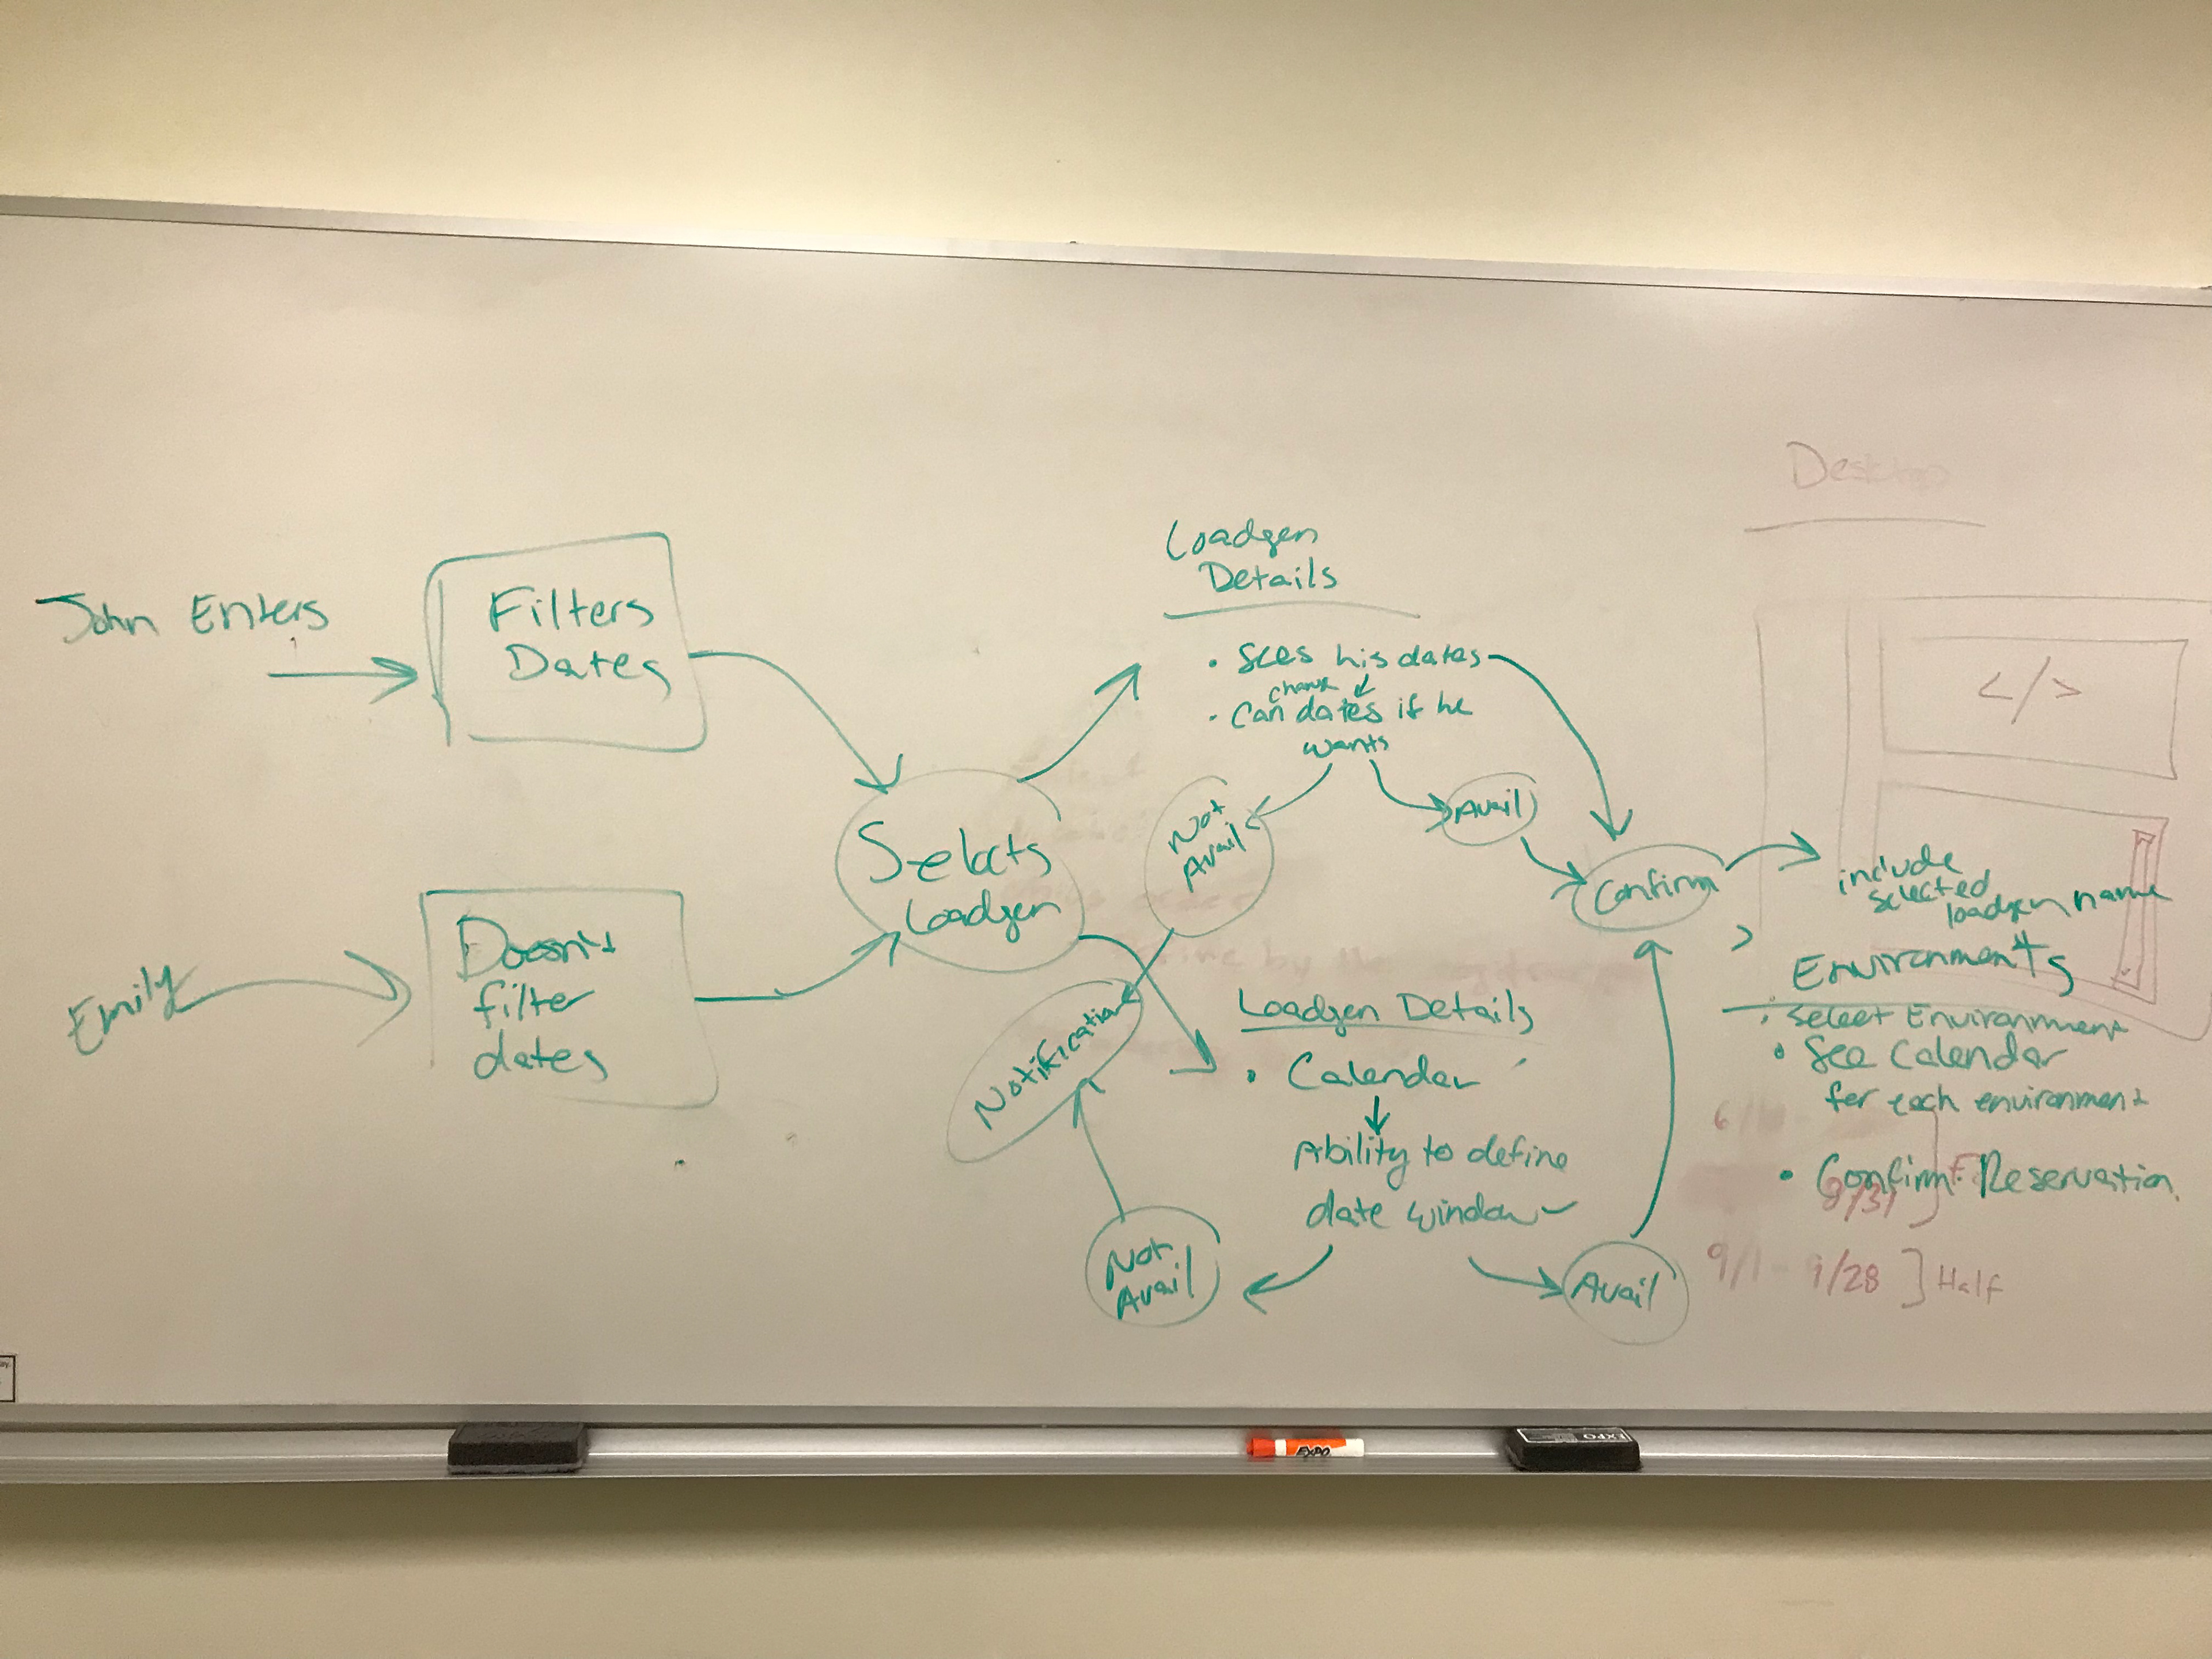 John Enters
Filters
Dates
Emily
Doesn't
filter
dates
Selects
Loadgen
Loadgen
Details
• Sees his dates
change
• Can dates if he
wants
Not
Avail
Avail
Confirm
Notification
Loadgen Details
• Calendar
Ability to define
date window
Not
Avail
Avail
include
selected
loadgen name
Environments
• Select Environment
• See Calendar
for each environment
• Confirm Reservation.
Desktop
</>
8/31
9/1 - 9/28 ] Half
EXPO
EXPO